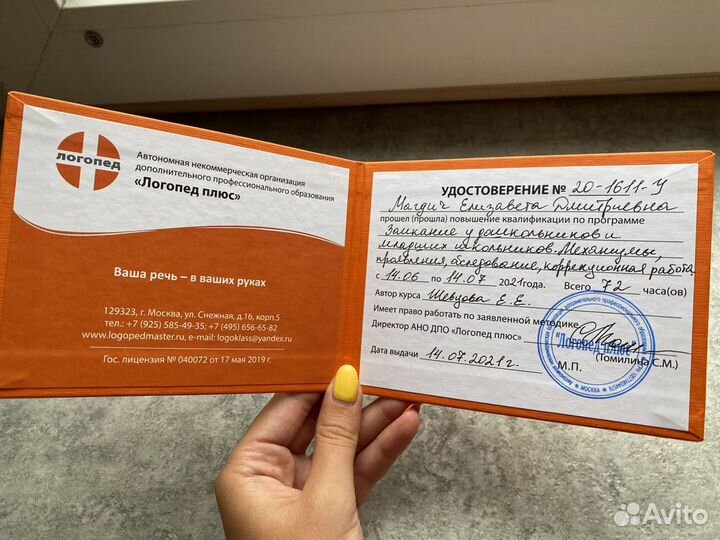 логопед
Автономная некоммерческая организация
дополнительного профессионального образования
«Логопед плюс»
Ваша речь – в ваших руках
129323, г. Москва, ул. Снежная, д.16, корп.5
тел.: +7 (925) 585-49-35; +7 (495) 656-65-82
www.logopedmaster.ru, e-mail: logoklass@yandex.ru
Гос. лицензия № 040072 от 17 мая 2019 г.
УДОСТОВЕРЕНИЕ № 20-1611-У
Магдич Елизавета Дмитриевна
прошел (прошла) повышение квалификации по программе
Заикание у дошкольников и
младших школьников. Механизмы,
проявления, обследование, коррекционная работа
с 14.06 по 14.07 2021года. Всего 72 часа(ов)
Автор курса Шевцова Е.Е.
Имеет право работать по заявленной методике.
Директор АНО ДПО «Логопед плюс»
(Томилина С.М.)
Дата выдачи 14.07.2021г.
М.П.
"Логопед плюс"
МОСКВА
Avito